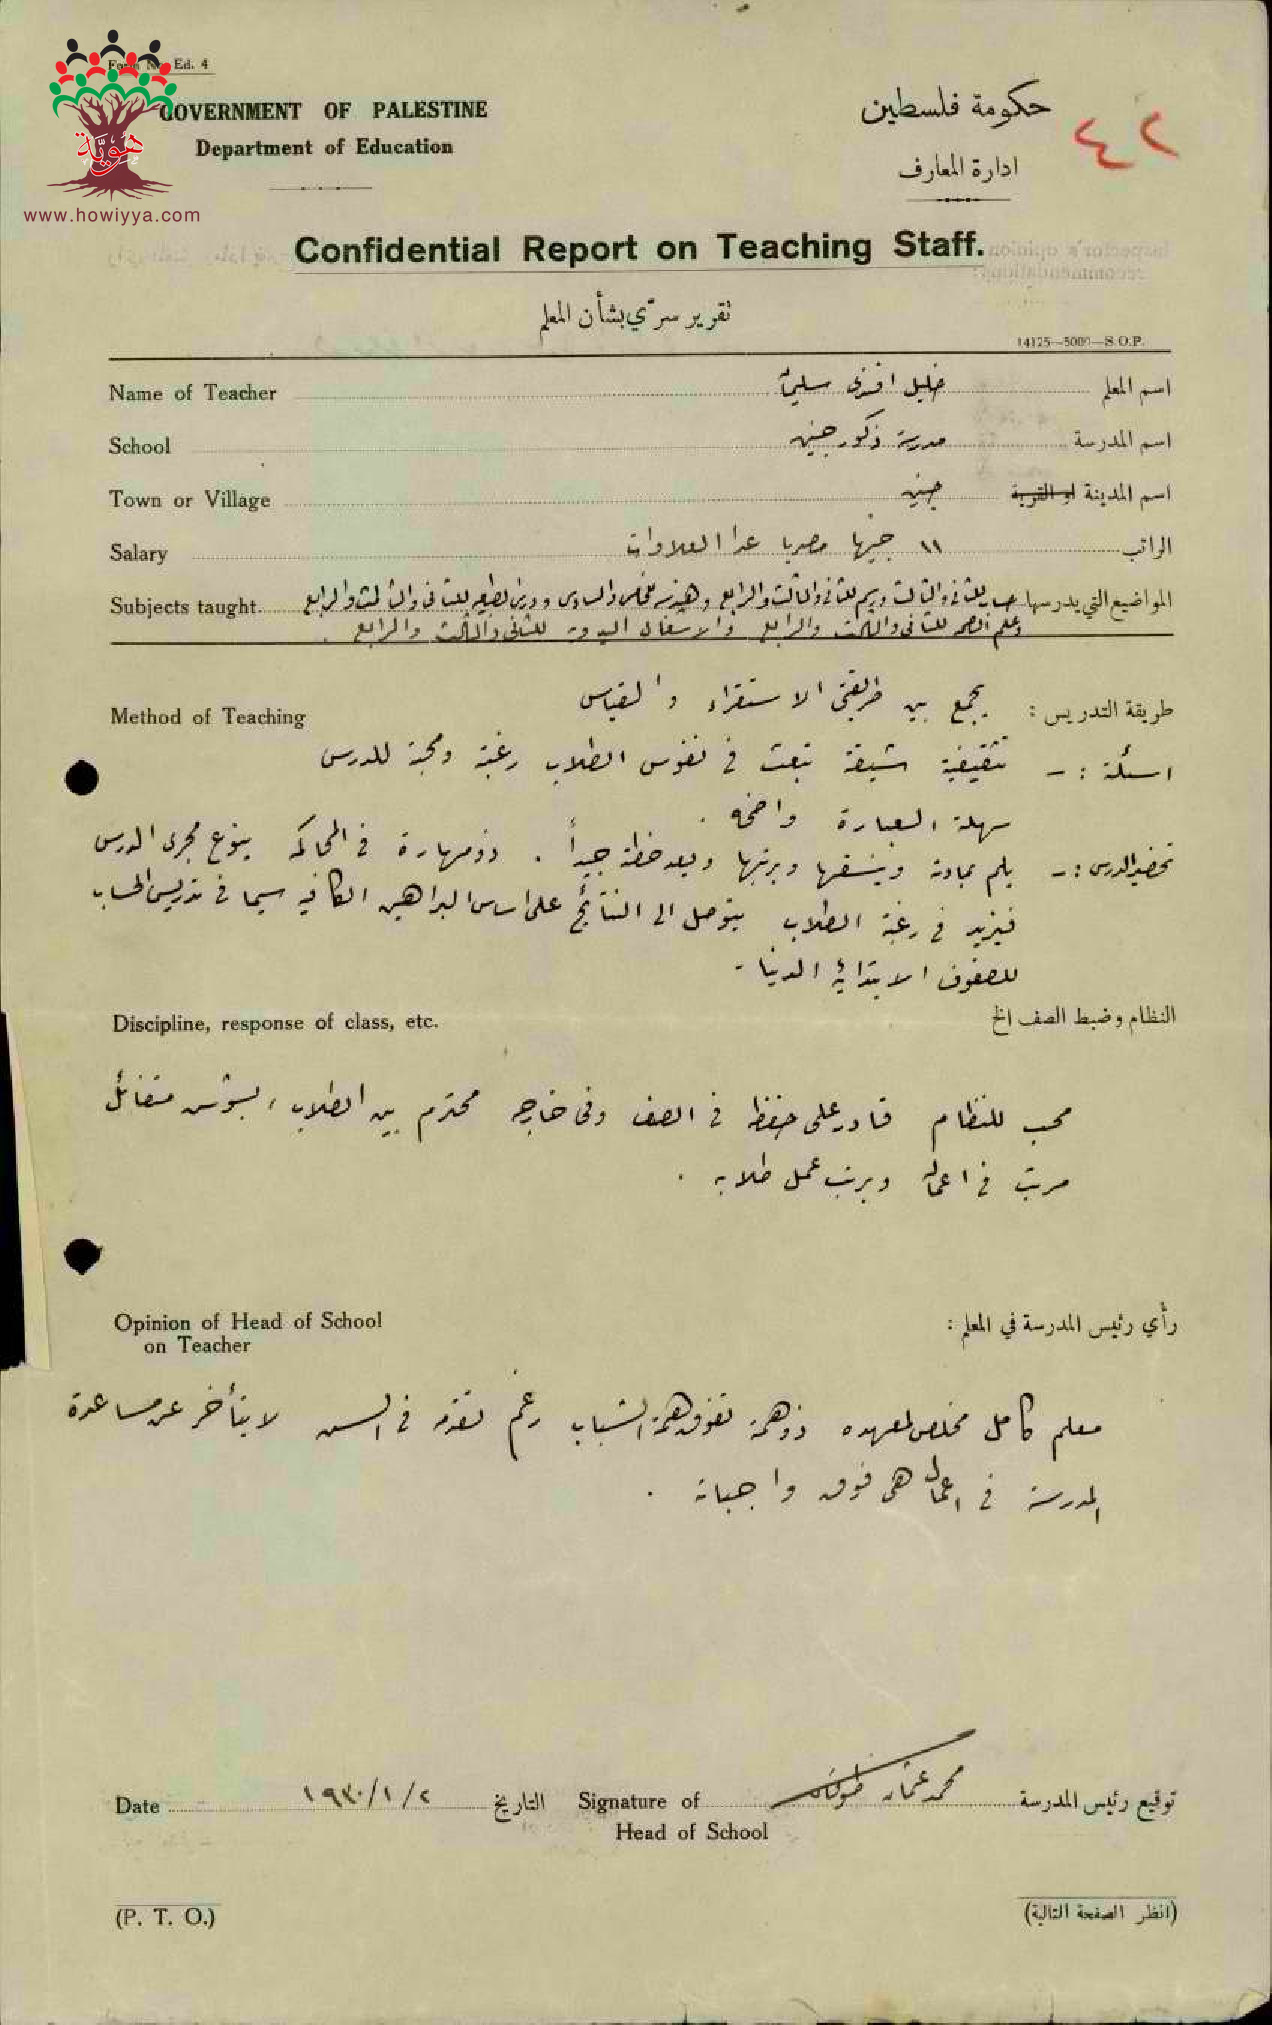 Form No. Ed. 4
GOVERNMENT OF PALESTINE
Department of Education
حكومة فلسطين
ادارة المعارف
٤٢
هوية
www.howiyya.com
Confidential Report on Teaching Staff.
تقرير سري بشأن المعلم
14125—5000—S.O.P.
Name of Teacher خليل افندي سليمان اسم المعلم
School مدرسة ذكور جنين اسم المدرسة
Town or Village جنين اسم المدينة او القرية
Salary ١١ جنيها مصريا عدا العلاوات الراتب
Subjects taught المواضيع التي يدرسها حساب للثاني والثالث ورسم للثاني والثالث والرابع وهندسة للخامس والسادس ودرس الطبيعة للثاني والثالث والرابع
وعلم الصحة للثاني والثالث والرابع والاشغال اليدوية للثاني والثالث والرابع .
Method of Teaching طريقة التدريس : يجمع بين طريقتي الاستقراء والقياس
اسئلة : - تثقيفية شيقة تبعث في نفوس الطلاب رغبة ومحبة للدرس
سهلة العبارة واضحة .
تحضير الدرس : - يلم بمادته وينسقها ويرتبها ويعد خطته جيداً . ذو مهارة في المحاكمة ينوع مجرى الدرس
فيزيد في رغبة الطلاب يتوصل الى النتائج على اساس البراهين الكافية سيما في تدريس الحساب
للصفوف الابتدائية الدنيا .
Discipline, response of class, etc. النظام وضبط الصف الخ
محب للنظام قادر على حفظه في الصف وفي خارجه محترم بين الطلاب ، بشوش متفائل
مرتب في اعماله ويرتب عمل طلابه .
Opinion of Head of School رأي رئيس المدرسة في المعلم :
on Teacher
معلم كامل مخلص لمعهده ذو همة تفوق همة الشباب رغم تقدمه في السن لا يتأخر عن مساعدة
المدرسة في اعمال هي فوق واجباته .
Date ١٩٣٠/١/٢ التاريخ Signature of محمد عثمان توقيع رئيس المدرسة
Head of School
(P. T. O.) (انظر الصفحة التالية)